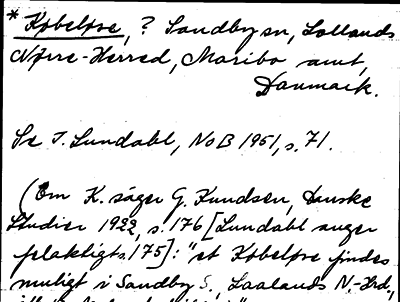 * Købeløse, ? Sandby sn, Lollands
Nørre-Herred, Maribo amt,
Danmark.
Se J. Lundahl, NoB 1951, s. 71.
(Om K. säger G. Knudsen, Danske
Studier 1922, s. 176 [Lundahl anger
felaktigt s. 175]: "et Købeløse findes
muligt i Sandby S., Laalands N.-Hrd,